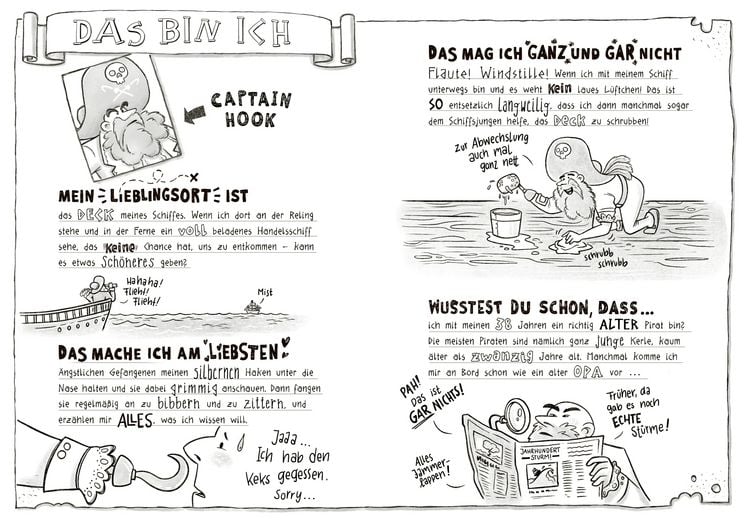 DAS BIN ICH
CAPTAIN
HOOK
MEIN LIEBLINGSORT IST
das DECK meines Schiffes. Wenn ich dort an der Reling
stehe und in der Ferne ein VOLL beladenes Handelsschiff
sehe, das Keine Chance hat, uns zu entkommen – kann
es etwas Schöneres geben?
Hahaha!
Flieht!
Flieht!
Mist
DAS MACHE ICH AM LIEBSTEN!
Ängstlichen Gefangenen meinen silbernen Haken unter die
Nase halten und sie dabei grimmig anschauen. Dann fangen
sie regelmäßig an zu bibbern und zu zittern, und
erzählen mir ALLES, was ich wissen will.
Jaaa...
Ich hab den
Keks gegessen.
Sorry...
DAS MAG ICH GANZ UND GAR NICHT
Flaute! Windstille! Wenn ich mit meinem Schiff
unterwegs bin und es weht Kein laues Lüftchen! Das ist
SO entsetzlich langweilig, dass ich dann manchmal sogar
dem Schiffsjungen helfe, das DECK zu schrubben!
zur Abwechslung
auch mal
ganz nett
schrubb
schrubb
WUSSTEST DU SCHON, DASS...
ich mit meinen 38 Jahren ein richtig ALTER Pirat bin?
Die meisten Piraten sind nämlich ganz junge Kerle, kaum
älter als zwanzig Jahre alt. Manchmal komme ich
mir an Bord schon wie ein alter OPA vor ...
PAH!
Das ist
GAR NICHTS!
Alles
Jammer-
lappen!
JAHRHUNDERT
STURM!
Trüher, da
gab es noch
ECHTE
Stürme!